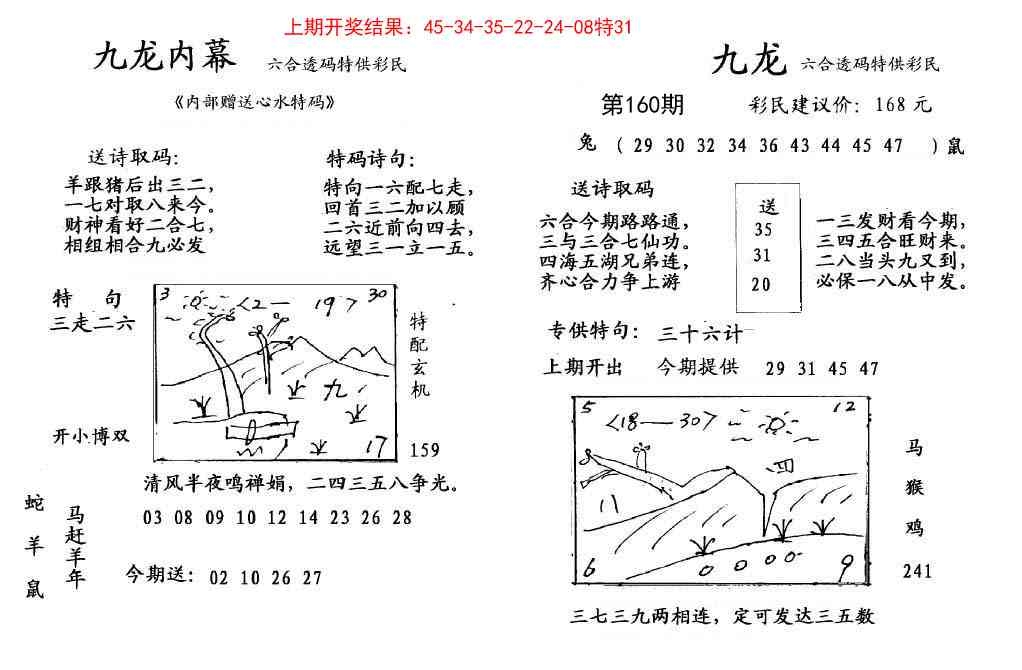 上期开奖结果：45-34-35-22-24-08特31
九龙内幕 六合透码特供彩民
《内部赠送心水特码》
送诗取码：
羊跟猪后出三二，
一七对取八来今。
财神看好二合七，
相组相合九必发
特码诗句：
特向一六配七走，
回首三二加以顾
二六近前向四去，
远望三一立一五。
特 句
三走二六
开小博双
3 <2— 19> 30
九
17
特配玄机
159
清风半夜鸣禅娟，二四三五八争光。
03 08 09 10 12 14 23 26 28
蛇羊鼠
马赶羊年
今期送：02 10 26 27
九龙 六合透码特供彩民
第160期 彩民建议价：168元
兔 （29 30 32 34 36 43 44 45 47 ）鼠
送诗取码
六合今期路路通，
三与三合七仙功。
四海五湖兄弟连，
齐心合力争上游
送
35
31
20
一三发财看今期，
三四五合旺财来。
二八当头九又到，
必保一八从中发。
专供特句：三十六计
上期开出 今期提供 29 31 45 47
5 <18—30> 12
八 四
6 9
马
猴
鸡
241
三七三九两相连，定可发达三五数